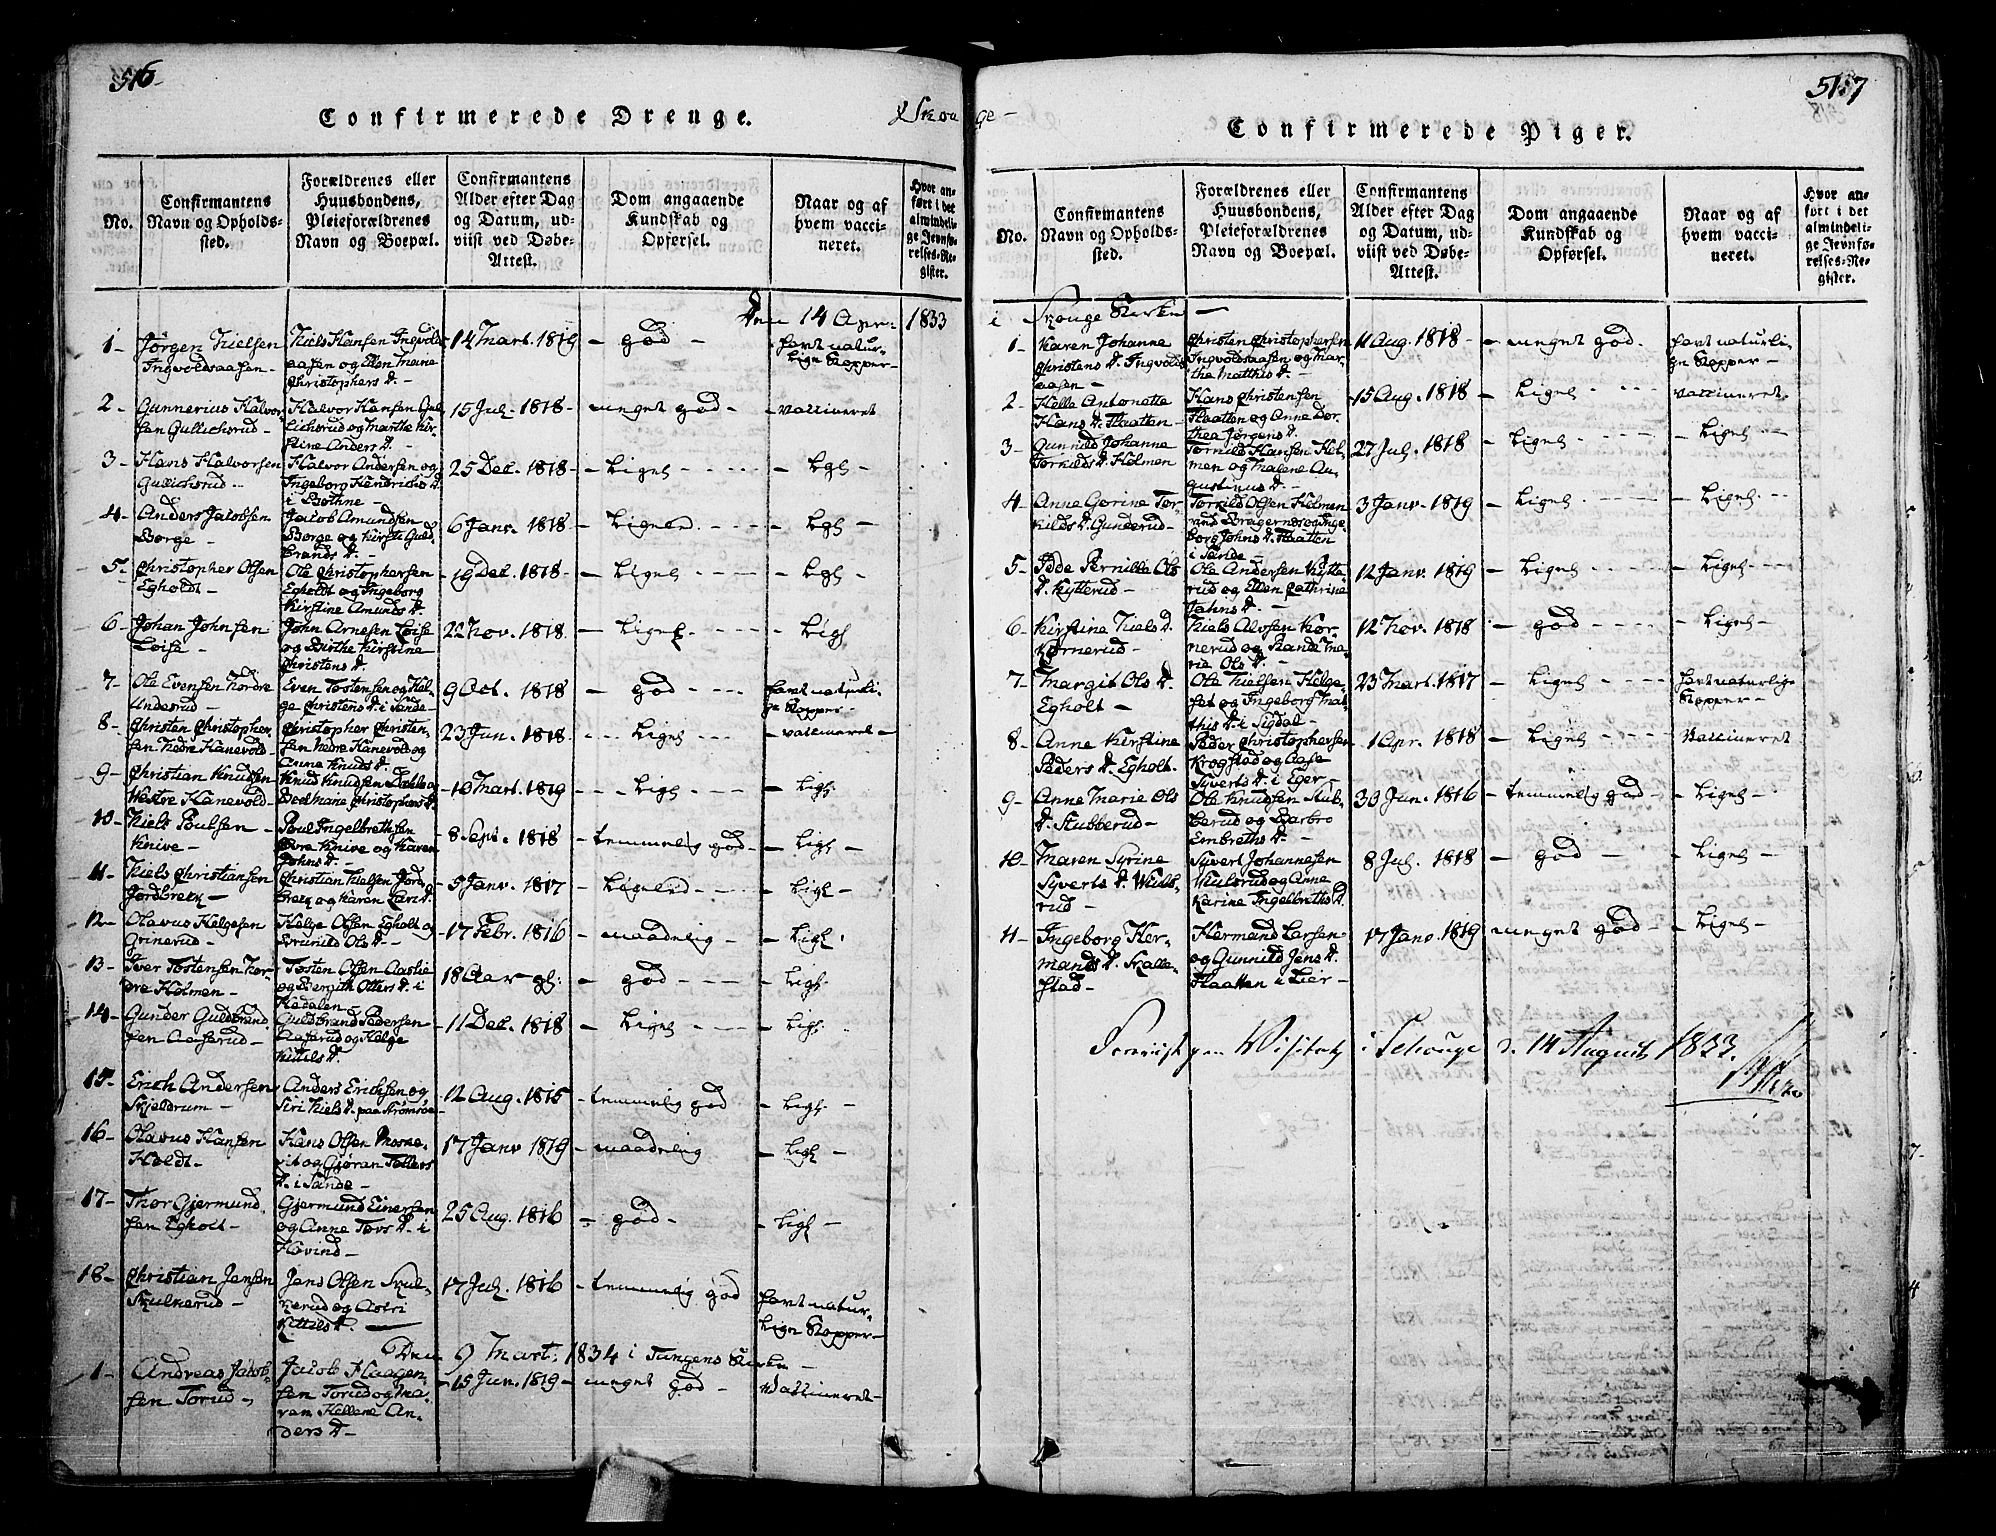 516
Confirmerede Drenge.
No.
Confirmantens
Navn og Opholds-
sted.
Forældrenes eller
Huusbondens,
Pleieforældrenes
Navn og Boepæl.
Confirmantens
Alder efter Dag
og Datum, ud-
viist ved Døbe-
Attest.
Dom angaaende
Kundskab og
Opførsel.
Naar og af
hvem vacci-
neret.
Hvor an-
ført i det
almindeli-
ge Jevnfø-
relses-Re-
gister.
Den 14 Apr. 1833
1- Jørgen Nielsen
Ingvoldsaasen-
Niels Hansen Ingvolds
aasen og Ellen Marie
Christophers D.-
14 Mart. 1819
- god -
havt natur-
lige Kopper-
2- Gunnerius Halvor
sen Gullichsrud-
Halvor Hansen Gul
lichsrud og Marthe Kir-
stine Anders D.-
15 Jul. 1818-
meget god-
-vaccineret
3- Hans Halvorsen
Gullichsrud-
Halvor Andersen og
Ingeborg Hendrichs D.
i Bothne-
25 Dec. 1818-
Ligel-
- Lgl-
4- Anders Jacobsen
Borge-
Jacob Amundsen
Borge og Kirsti Guld
brands D.-
6 Janv. 1818-
- Lignend-
- Lgl-
5- Christopher Olsen
Egholdt-
Ole Christophersen
Egholdt og Ingeborg
Kirstine Amunds D.
19 Dec. 1818-
- Ligel-
- Lgl-
6- Johan Johnsen
Loise-
John Arnesen Loise
og Birthe Kirstine
Christens D.
22 Nov. 1818
- Ligel-
- Ligl
7- Ole Evensen Nordre
Underud-
Even Tostensen og Hel-
ge Christens D. i Sande-
9 Oct. 1818
- god-
havt naturli-
ge Kopper-
8- Christen Christopher
sen Nedre Kanevold-
Christopher Christen
sen Nedre Kanevold og
Anna Knuds D.
23 Jun. 1818
- Ligel-
-vaccineret-
9- Christian Knudsen
Westre Kanevold-
Knud Knudsen
og
Marie Christophers D.
-10 Mart. 1819
- Ligel-
- Ligl-
10- Niels Poulsen-
Knive-
Poul Ingelbrethsen
Øvre Knive og Karen
Johns D.-
8 Sept. 1818
-temmelig god-
- Ligl-
11- Niels Christiansen
Jordbrek-
Christian Nielsen Jord
brek og Karen Lars D.
-5 Janv. 1817
- Lignend-
- Ligl-
12- Olavus Helgesen
Grinerud-
Helge Olsen Egholt og
Brunild Ols D.-
17 Febr. 1816
-maadelig-
- Ligl.
13- Iver Tostensen Nor-
dre Holmen-
Tosten Olsen Aaslie
og Bergith Otters D. i
Hedalen-
18 Aar gl.
- god-
- Ligl-
14- Gunder Guldbrand
sen Aaserud-
Guldbrand Pedersen
Aaserud og Helge
Kittils D.
11 Dec. 1818
- Ligel-
- Ligl-
15- Erich Andersen
Skjeldrum-
Anders Erichsen og
Siri Niels D. paa Strømsøe
12 Aug. 1815
-temmelig god
- Ligl-
16- Olavus Hansen
Holdt-
Hans Olsen
og Gjøran Tollevs
D. i Sande-
17 Janv 1819
-maadelig
- Ligl-
17- Thor Gjermund
sen Egholt-
Gjermund Einersen
og Anne Tovs D. i
Hovind-
25 Aug. 1816
- god-
- Ligl-
18- Christian Jensen
Skulkerud-
Jens Olsen Skul-
kerud og Astri
Kittils D.
17 Jul. 1816
-temmelig god
havt natur-
lige Kopper-
Den 9 Mart. 1834 i Tangens Kirke-
1- Andreas Jacob-
sen Torud-
Jacob Haagen-
sen Torud og Ma-
ren Hellene An-
ders D-
-15 Jun. 1819-
meget god-
Vaccineret-
i Skouge-
517
Confirmerede Piger.
No.
Confirmantens
Navn og Opholds-
sted.
Forældrenes eller
Huusbondens,
Pleieforældrenes
Navn og Boepæl.
Confirmantens
Alder efter Dag
og Datum, ud-
viist ved Døbe-
Attest.
Dom angaaende
Kundskab og
Opførsel.
Naar og af
hvem vacci-
neret.
Hvor an-
ført i det
almindeli-
ge Jevnfø-
relses-Re-
gister.
i Skouge Kirke-
1- Karen Johanne
Christens D. Ingvolds
aasen-
Christen Christophersen
Ingvoldsaasen og Mar-
the Matthis D.-
11 Aug. 1818-
-meget god-
havt naturli-
ge Kopper-
2- Helle Antonette
Hans D. Flaatten-
Hans Christensen
Flaatten og Anne Dor-
thea Jørgens D.
-15 Aug. 1818
- Ligel-
vaccineret-
3- Gunnild Johanne
Torkilds D. Holmen
Torkild Hansen Hol-
men og Malene Au-
gustinus D.-
27 Jul. 1818
- Ligel-
- Ligel-
4- Anne Gorine Tor-
kilds D. Gunderud-
Torkild Olsen Holmen
ved Bragernes og Inge-
borg Johns D. Flaatten
i Sande-
-3 Janv. 1819
- Ligel-
- Ligel-
5- Idde Pernille Ols
D. Kytterud-
Ole Andersen Kytte-
rud og Ellen Cathrine
Jahns D.-
12 Janv. 1819
- Ligel-
- Ligel-
6- Kirstine Niels D.
Kornerud-
Niels Alvsen Kor-
nerud og Rande Ma-
rie Ols D.-
12 Nov. 1818
- god-
- Ligel-
7- Margit Ols D.
Egholt-
Ole Nielsen Helge-
set og Ingeborg Mat-
this D. i Sigdal-
23 Mart. 1817
- Ligel-
havt naturlige
Kopper-
8- Anne Kirstine
Peders D. Egholt.
Peder Christophersen
Krogstad og Aase
Syverts D. i Eger-
-1 Apr. 1818
- Ligel-
Vaccineret
9- Anne Marie Ols
D. Stubberud-
Ole Knudsen Stub-
berud og Barbro
Embreths D.-
30 Jun. 1816
-temmelig god-
- Ligel-
10- Maren Syrine
Syverts D. Wuls-
rud-
Syvert Johannesen
Wulsrud og Anne
Karine Ingelbreths D.
8 Jul. 1818
- god-
- Ligel-
11- Ingeborg Her-
mands D. Skalle-
stad-
Hermand Larsen
og Gunnild Jens D.
Flaatten i Lier-
17 Janv. 1819
meget god-
- Ligel-
Foreviist paa Visitats i Schouge d. 14 August 1833.